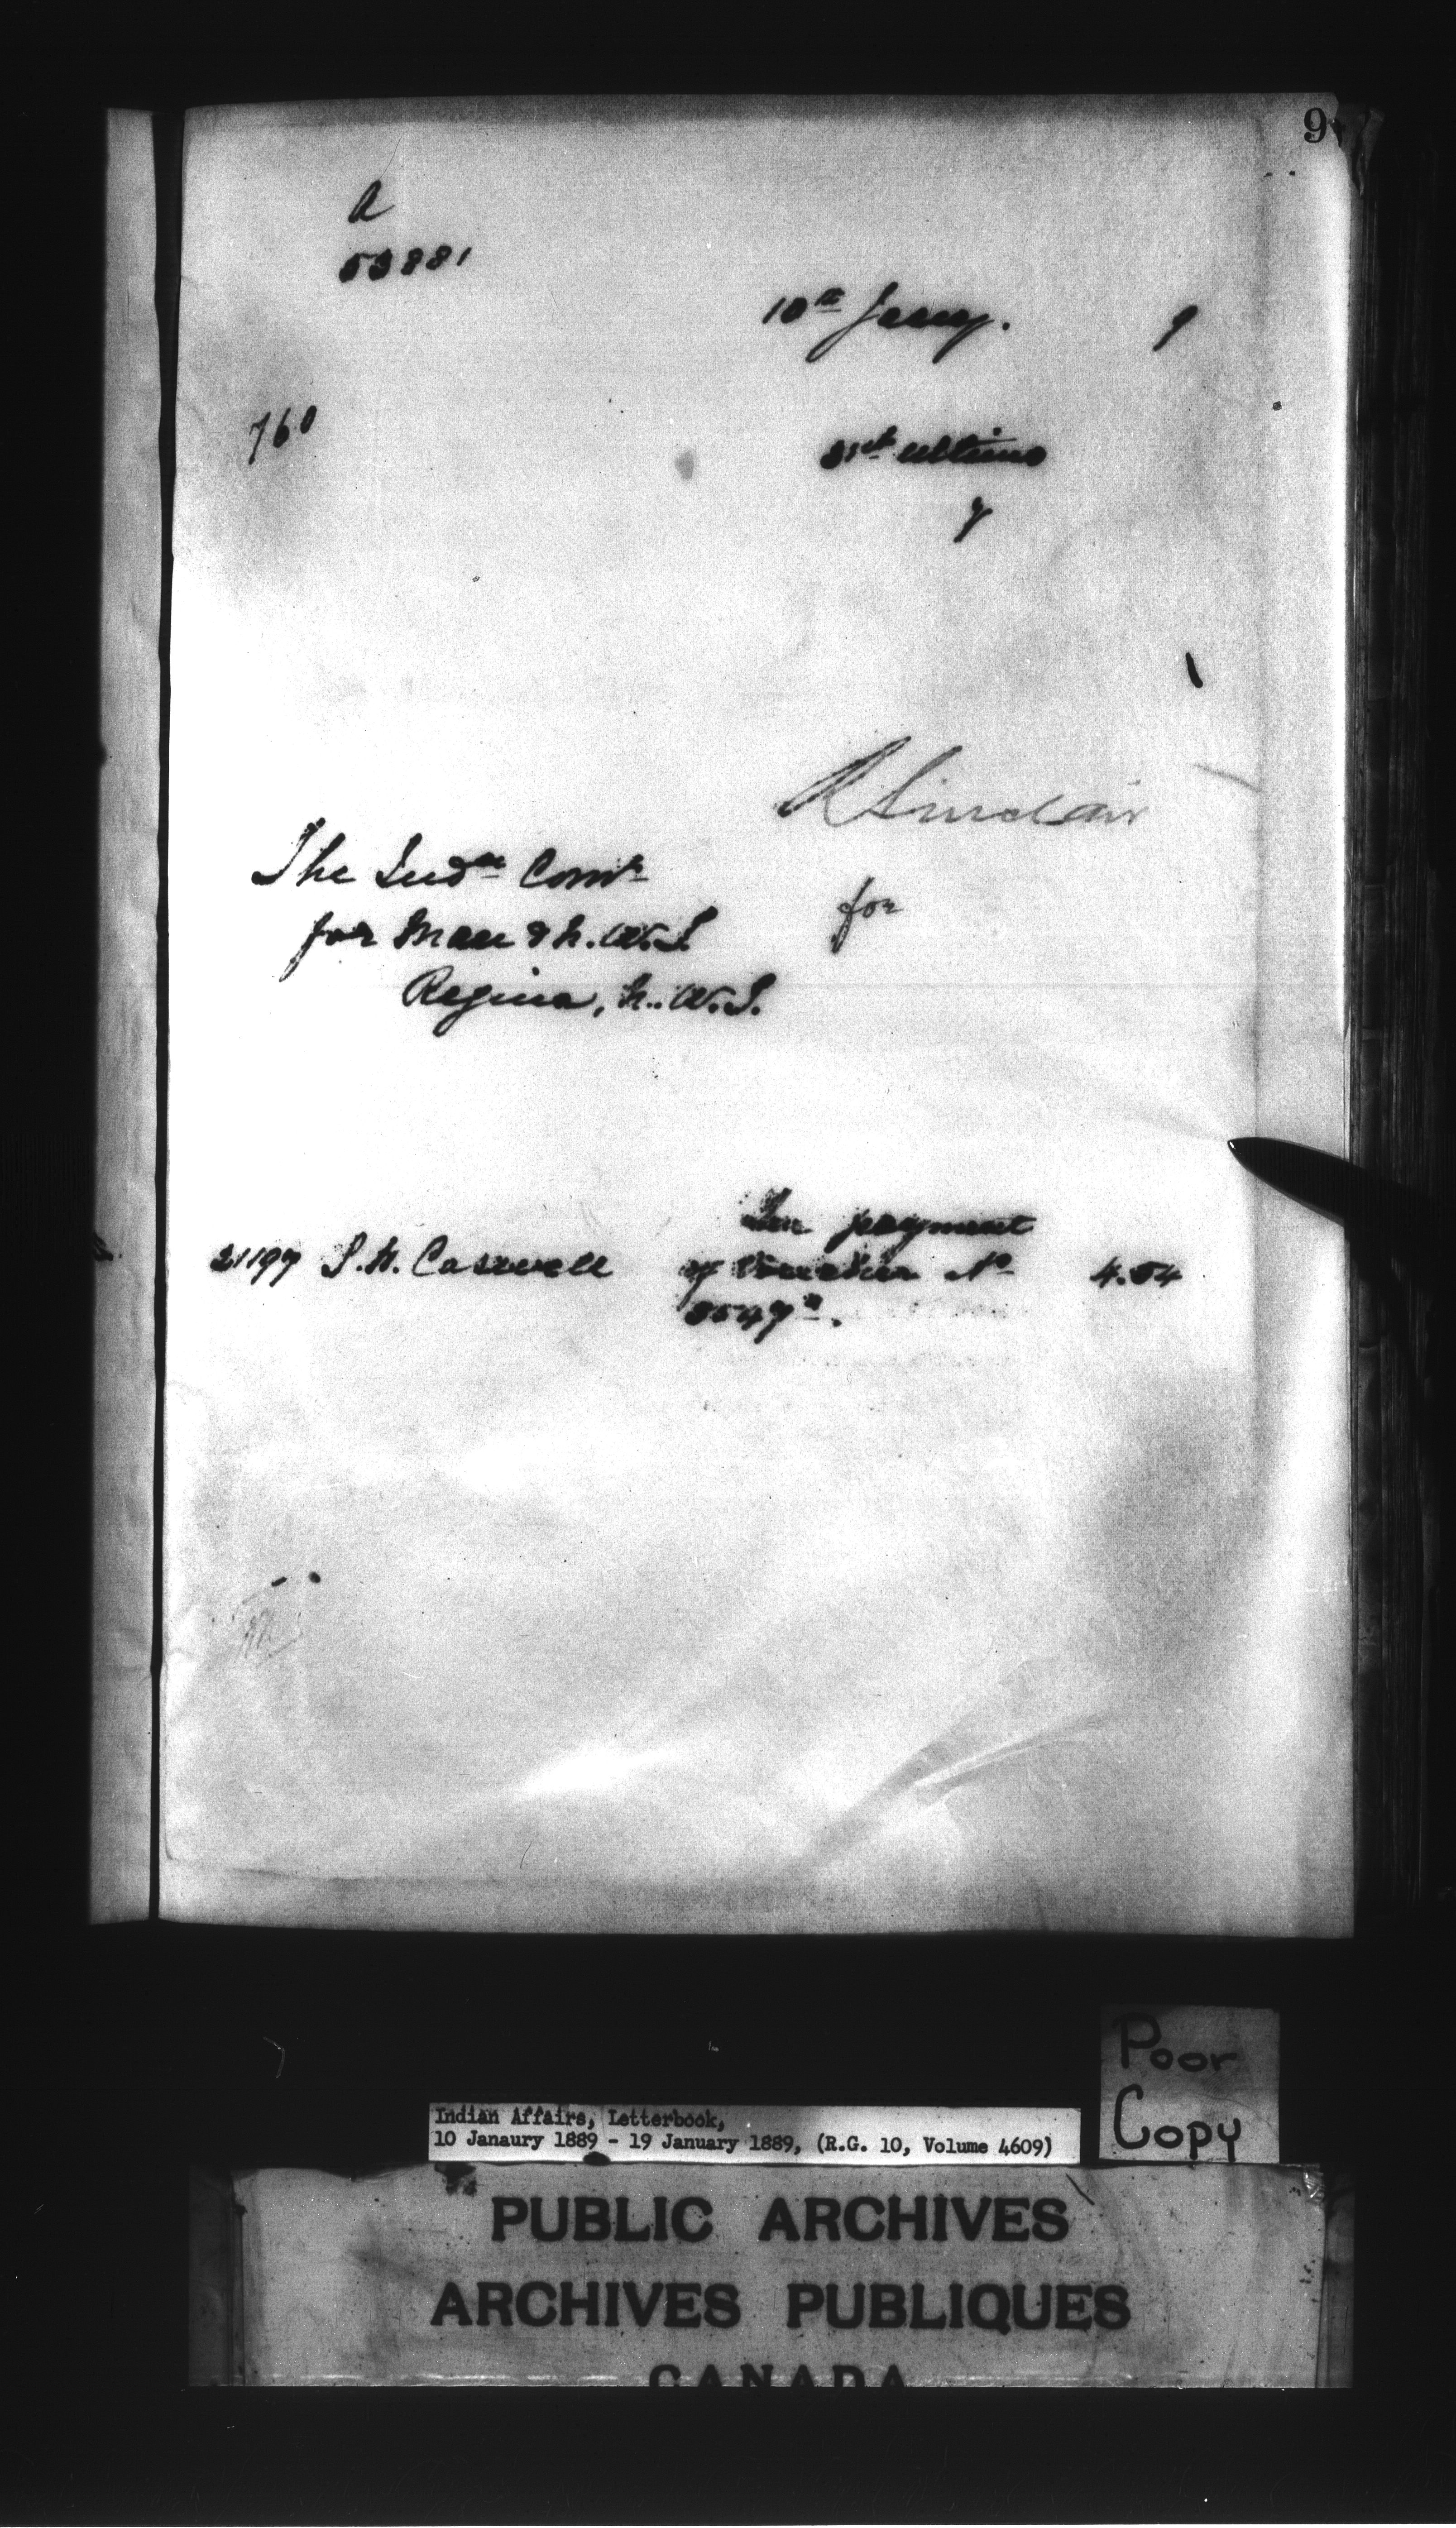 9
A
53881
10th Jany. 9
760
31st ultimo
y
R Sinclair
The Indn Comr
for
for Man & N.W.T.
Regina, N.W.T.
In payment
21197 S.H. Caswell of Voucher No 4.54
8547
Poor
Copy
Indian Affairs, Letterbook,
10 Janaury 1889 - 19 January 1889, (R.G. 10, Volume 4609)
PUBLIC ARCHIVES
ARCHIVES PUBLIQUES
CANADA